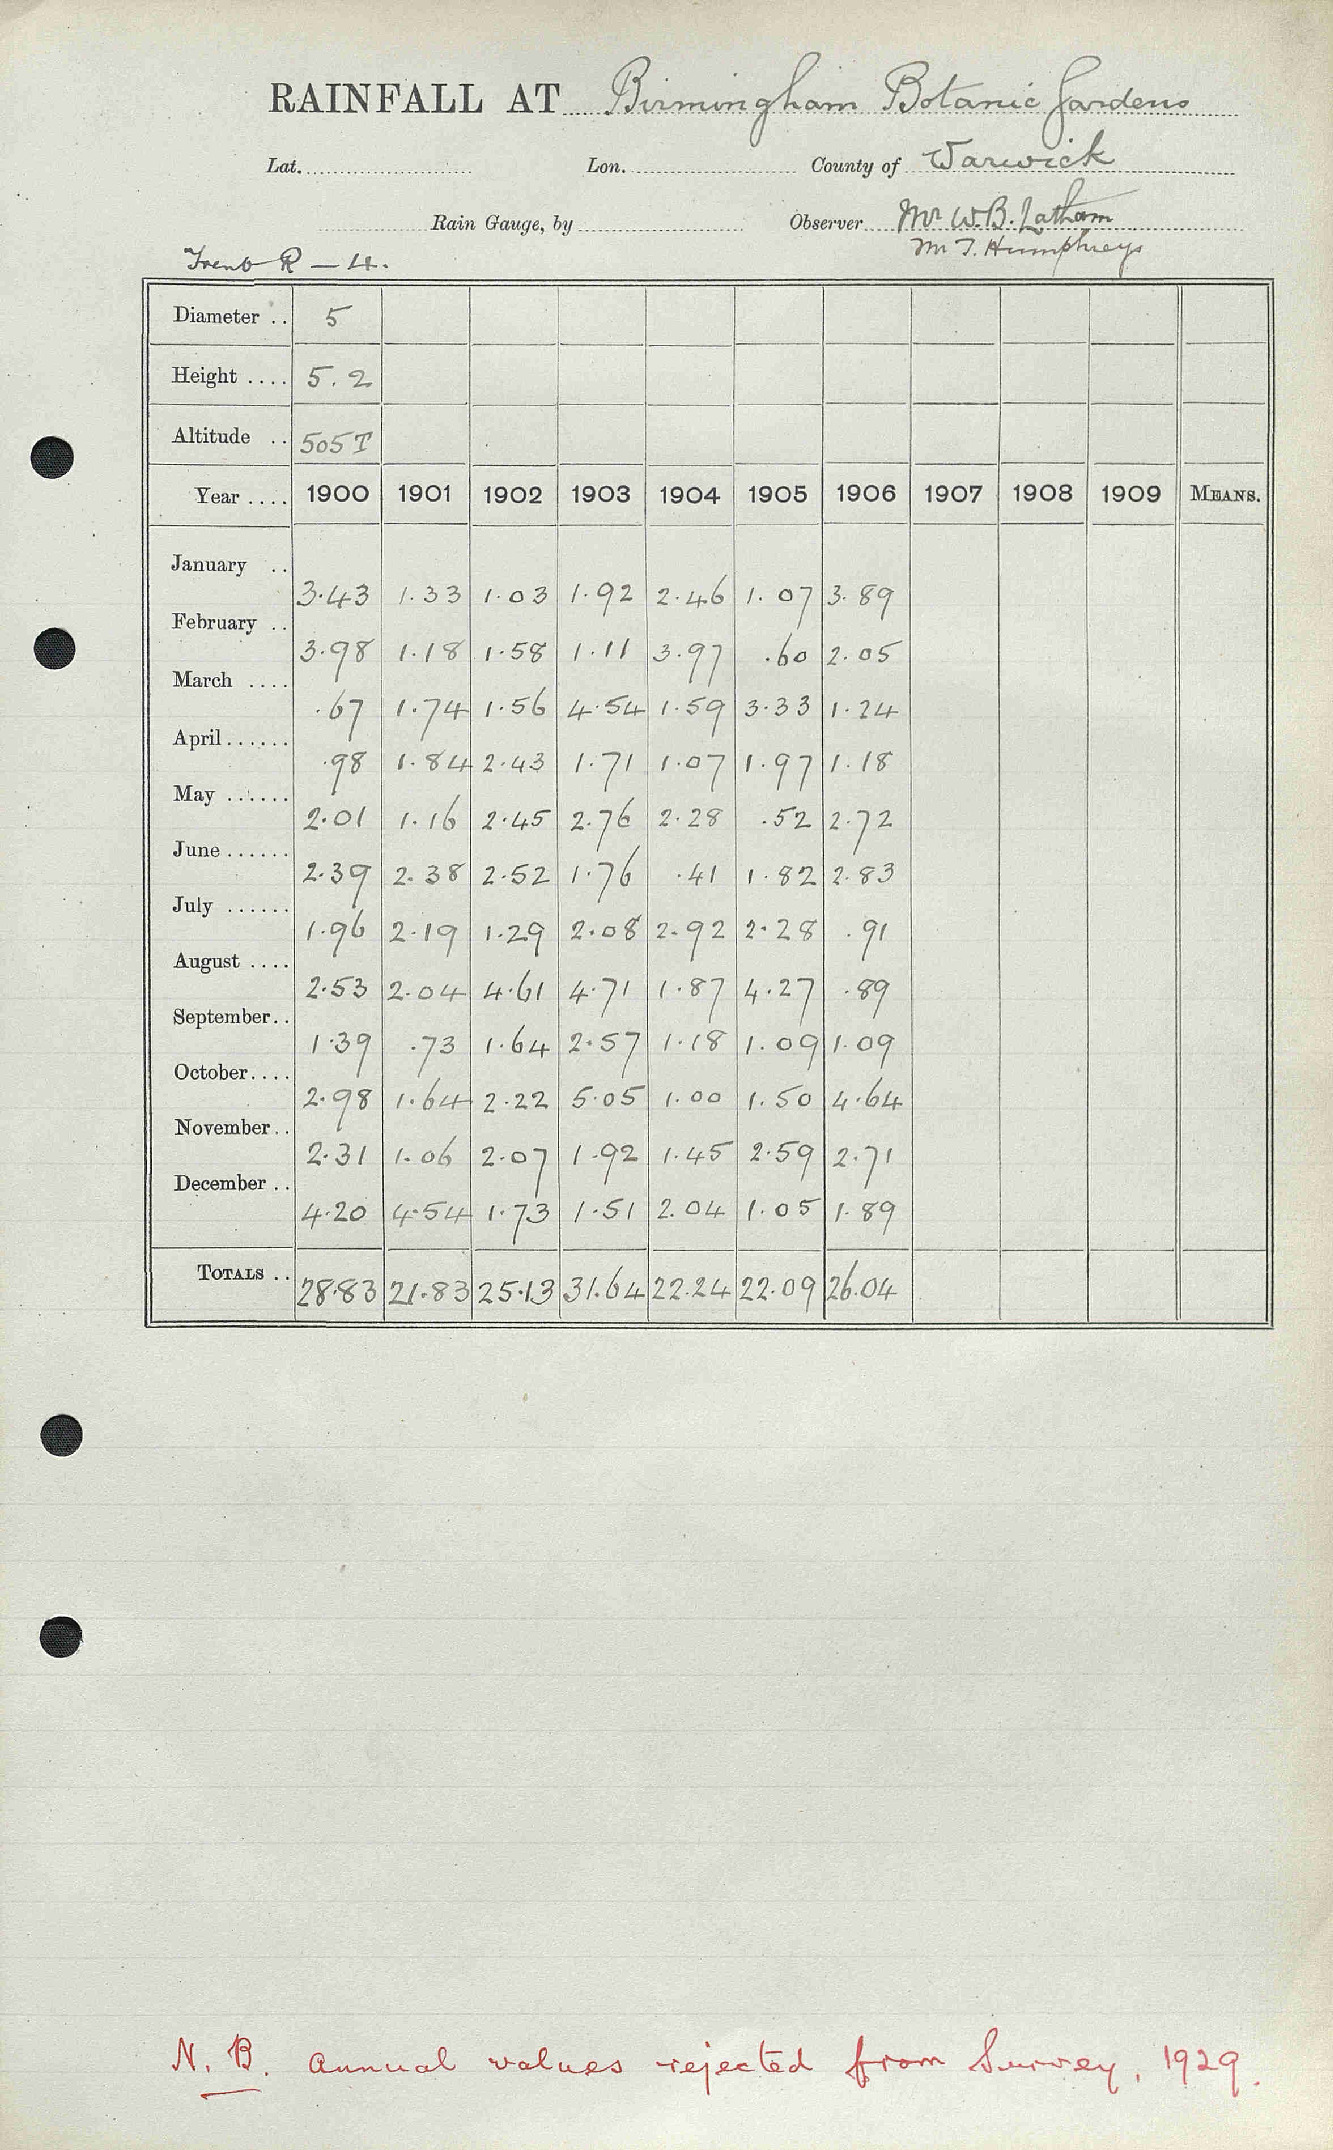 RAINFALL AT Birmingham Botanic Gardens
Lat. Lon. County of Warwick
Rain Gauge, by Observer Mr W.B. Latham
Mr T. Humphreys
Trent R — 4.
Diameter .. 5
Height .... 5.2
Altitude .. 505 T
Year .... 1900 1901 1902 1903 1904 1905 1906 1907 1908 1909 MEANS.
January ..
3.43 1.33 1.03 1.92 2.46 1.07 3.89
February ..
3.98 1.18 1.58 1.11 3.97 .60 2.05
March ....
.67 1.74 1.56 4.54 1.59 3.33 1.24
April ......
.98 1.84 2.43 1.71 1.07 1.97 1.18
May ......
2.01 1.16 2.45 2.76 2.28 .52 2.72
June ......
2.39 2.38 2.52 1.76 .41 1.82 2.83
July ......
1.96 2.19 1.29 2.08 2.92 2.28 .91
August ....
2.53 2.04 4.61 4.71 1.87 4.27 .89
September..
1.39 .73 1.64 2.57 1.18 1.09 1.09
October....
2.98 1.64 2.22 5.05 1.00 1.50 4.64
November..
2.31 1.06 2.07 1.92 1.45 2.59 2.71
December ..
4.20 4.54 1.73 1.51 2.04 1.05 1.89
TOTALS .. 28.83 21.83 25.13 31.64 22.24 22.09 26.04
N. B. Annual values rejected from Survey, 1929.